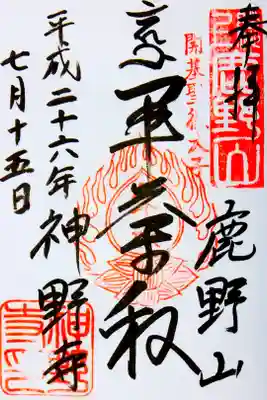 奉拝
鹿野山
開基聖徳太子
軍荼利
平成二十六年
七月十五日
神野寺